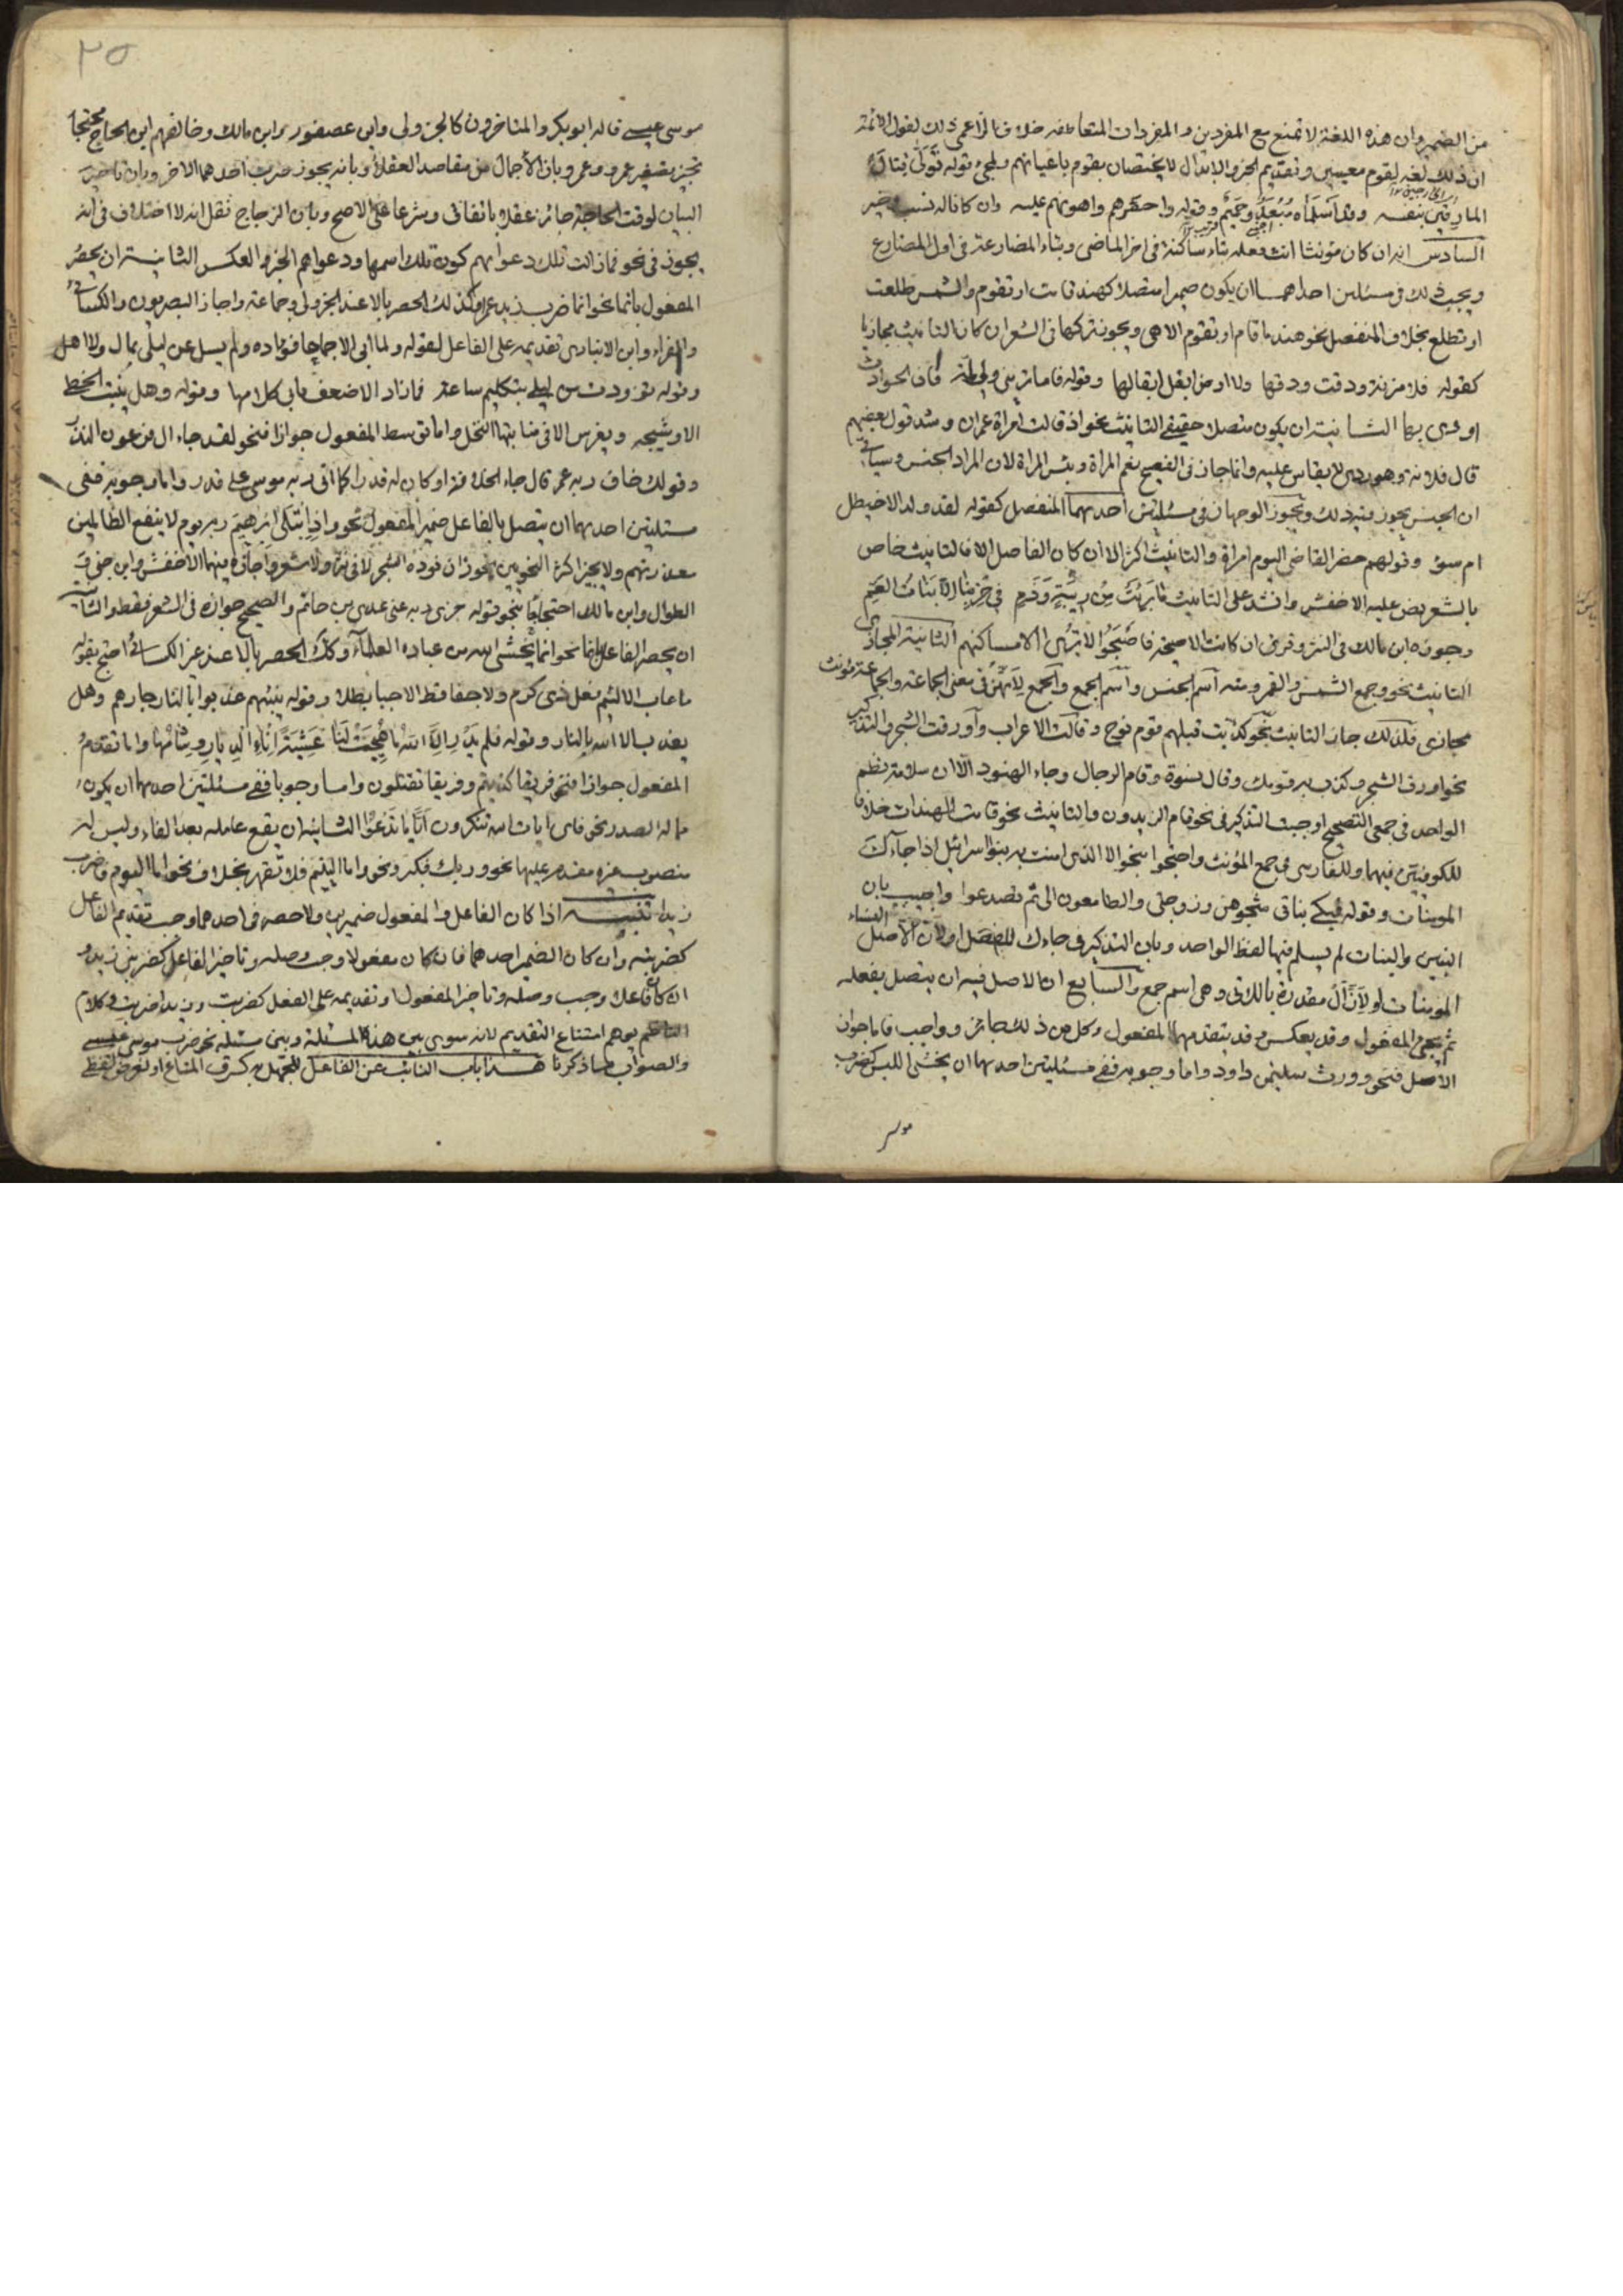 من الضمير وان هذه اللغة لا تمتنع مع المفردين والمفردات المتعاطفة خلافا لزاعمي ذلك لقول الائمة
ان ذلك لغة لقوم معينين وتقديم الخبر والابدال لا يختصان بقوم باعيانهم ولمجئ قوله تولى قتال
المارقين بنفسه وقد اسلماه مبعد وحميم وقوله واحقرهم واهونهم عليه وان كانا له نسب وخير
السادس انه ان كان مؤنثا انث فعله بتاء ساكنة في اخر الماضي وبتاء المضارعة في اول المضارع
ويجب ذلك في مسئلتين احداهما ان يكون ضميرا متصلا كهند قامت او تقوم والشمس طلعت
او تطلع بخلاف المنفصل نحو هند ما قام او تقوم الا هي ويجوز تركها في الشعر ان كان التانيث مجازيا
كقوله فلا مزنة ودقت ودقها ولا ارض ابقل ابقالها وقوله فاما تريني ولي لمة فان الحوادث
اودى بها الثانية ان يكون متصلا حقيقي التانيث نحو اذ قالت امراة عمران وشذ قول بعضهم
قال فلانة وهو ردى لا يقاس عليه وانما جاز في الفصيح نعم المراة وبئس المراة لان المراد الجنس وسياتي
ان الجنس يجوز فيه ذلك ويجوز الوجهان في مسئلتين احدهما المنفصل كقوله لقد ولد الاخيطل
ام سوء وقولهم حضر القاضي اليوم امراة والتانيث اكثر الا ان كان الفاصل الا فالتانيث خاص
بالشعر نص عليه الاخفش وانشد على التانيث ما برئت من ريبة وذم في حربنا الا بنات العم
وجوزه ابن مالك في النثر وقرئ ان كانت الا صيحة فاصبحوا لا ترى الا مساكنهم الثانية المجازى
التانيث نحو وجمع الشمس والقمر ومنه اسم الجنس واسم الجمع والجمع لانهن في معنى الجماعة والجماعة مؤنث
مجازي فلذلك جاز التانيث نحو كذبت قبلهم قوم نوح وقالت الاعراب واورقت الشجر والتذكير
نحو اورق الشجر وكذب به قومك وقال نسوة وقام الرجال وجاء الهنود الا ان سلامة نظم
الواحد في جمعي التصحيح اوجبت التذكير في نحو قام الزيدون والتانيث نحو قامت الهندات خلافا
للكوفيين فيهما وللفارسي في جمع المؤنث واحتجوا بنحو الا الذي امنت به بنوا اسرائيل اذا جاءك
المومنات وقوله فبكى بناتي شجوهن وزوجتي والطامعون الى ثم تصدعوا واجيب بان
البنين والبنات لم يسلم فيها لفظ الواحد وبان التذكير في جاءك للفصل او لان الاصل النساء
المومنات او لان ال مقدرة باللاتي وهى اسم جمع والسابع ان الاصل فيه ان يتصل بفعله
ثم يجئ المفعول وقد يعكس وقد يتقدمهما المفعول وكل من ذلك جائز وواجب فاما جواز
الاصل فنحو وورث سليمن داود واما وجوبه ففي مسئلتين احدهما ان يخشى اللبس كضرب
موسى
٢٥
موسى عيسى قاله ابو بكر والمتاخرون كالجزولي وابن عصفور وابن مالك وخالفهم ابن الحاج محتجا
تجيز تصغير عمر وعمرو وبان الاجمال من مقاصد العقلا وبانه يجوز ضرب احدهما الاخر وبان تاخير
البيان لوقت الحاجة جائز عقلا باتفاق وشرعا على الاصح وبان الزجاج نقل انه لا اختلاف في انه
يجوز في نحو فما زالت تلك دعواهم كون تلك اسمها ودعواهم الخبر والعكس الثانية ان يحصر
المفعول بانما نحو انما ضرب زيد عمرا وكذلك الحصر بالا عند الجزولي وجماعة واجاز البصريون والكسائي
والفراء وابن الانباري تقديمه على الفاعل لقوله ولما ابى الا جماحا فؤاده ولم يسل عن ليلى بمال ولا اهل
وقوله تزودت من ليلى بتكليم ساعة فما زاد الا ضعف ما بي كلامها وقوله وهل ينبت الخطي
الا وشيجه ويغرس الا في منابتها النخل واما توسط المفعول جوازا فنحو لقد جاء ال فرعون النذر
وقولك خاف ربه عمر قال جاء الخلافة او كانت له قدرا كما اتى ربه موسى على قدر واما وجوبه ففي
مسئلتين احدهما ان يتصل بالفاعل ضمير المفعول نحو واذ ابتلى ابرهيم ربه يوم لا ينفع الظالمين
معذرتهم ولا يجيز اكثر النحويين نحو زان نوره الشجر لا في نثر ولا شعر واجازه فيهما الاخفش وابن جني و
الطوال وابن مالك احتجاجا بنحو قوله جزى ربه عني عدي بن حاتم والصحيح جوازه في الشعر فقط والثانية
ان يحصر الفاعل بانما نحو انما يخشى الله من عباده العلماء وكذا الحصر بالا عند غير الكسائي احتج بقوله
ما عاب الا لئيم فعل ذى كرم ولا جفا قط الا جبا بطلا وقوله نبئتهم عذبوا بالنار جارهم وهل
يعذب الا الله بالنار وقوله فلم يدر الا الله ما هيجت لنا عشية اناء الديار وشامها واما تقدم
المفعول جوازا فنحو فريقا كذبتم وفريقا تقتلون واما وجوبا ففي مسئلتين احدهما ان يكون
مما له الصدر نحو فاى ايات الله تنكرون ايا ما تدعوا الثانية ان يقع عامله بعد الفاء وليس له
منصوب غيره مقدم عليها نحو وربك فكبر ونحو اما اليتيم فلا تقهر بخلاف نحو اما اليوم فاضرب
زيدا تنبيه اذا كان الفاعل والمفعول ضميرين ولا حصر في احدهما وجب تقديم الفاعل
كضربته وان كان الضمير احدهما فان كان مفعولا وجب وصله وتاخير الفاعل كضربني زيد و
ان كان فاعلا وجب وصله وتاخير المفعول او تقديمه على الفعل كضربت زيدا وزيدا ضربت وكلام
الناظم يوهم امتناع التقديم لانه سوى بين هذه المسئلة وبين مسئلة نحو ضرب موسى عيسى
والصواب ما ذكرنا هذا باب النائب عن الفاعل للجهل به كسرق المتاع او لغرض لفظي